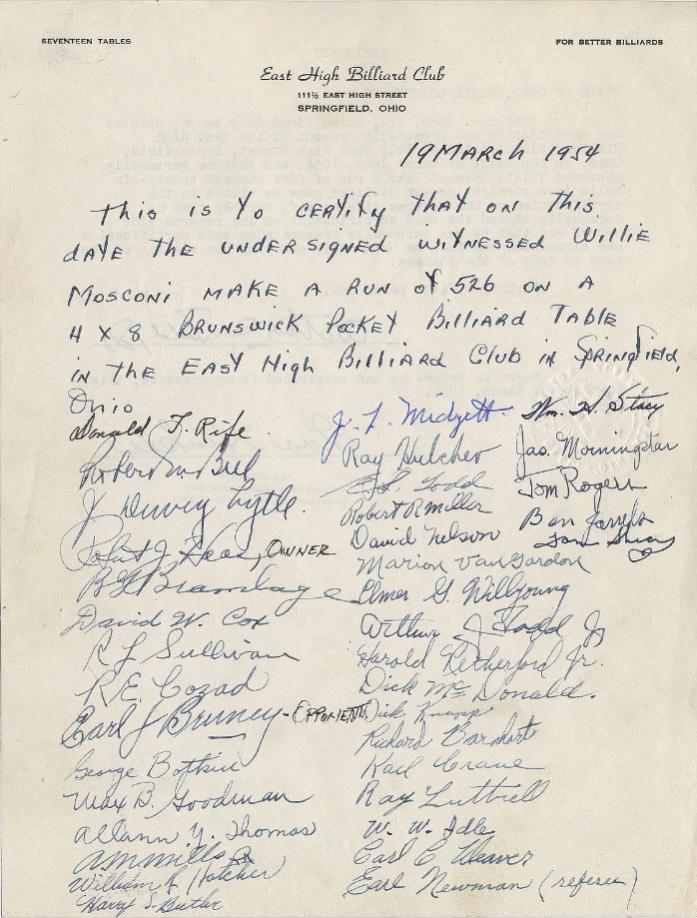 SEVENTEEN TABLES
FOR BETTER BILLIARDS
East High Billiard Club
111½ EAST HIGH STREET
SPRINGFIELD, OHIO
19 MARCH 1954
This is to certify that on this
date the undersigned witnessed Willie
Mosconi make a run of 526 on a
4 x 8 Brunswick Pocket Billiard Table
in the East High Billiard Club in Springfield,
Ohio
Donald T. Rife
J. Harvey Lytle.
OWNER
David W. Cox
R L Sullivan
R. E. Cozad
Earl J Bruney - OPPONENT
George Botkin
Max B. Goodman
Allann Y. Thomas
A M Mills Jr
William R Hatcher
Harry S. Butler
J. L. Midgett
Ray Hulcher
Todd
Robert R Miller
David Nelson
Marion Van Gordon
Elmer G. Willyoung
Arthur J Todd Jr
Harold Retherford Jr.
Dick McDonald.
Dick Knapp
Richard Barhart
Karl Crane
Ray Luttrell
W. W. Idle
Carl C Weaver
Earl Newman (referee)
Wm. H. Stacy
Jas. Morningstar
Tom Rogers
Ben Jarrels